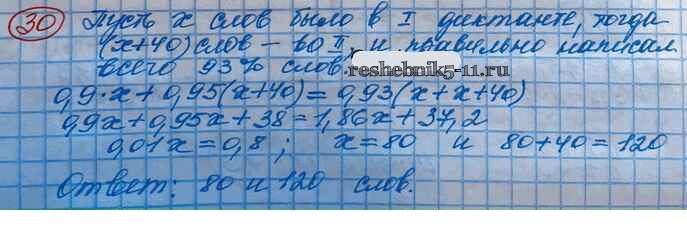 30 Пусть x слов было в I диктанте, тогда
(x+40) слов - во II, и правильно написал
всего 93% слов.
reshebnik5-11.ru
0,9·x+0,95(x+40)=0,93(x+x+40)
0,9x+0,95x+38=1,86x+37,2
0,01x=0,8; x=80 и 80+40=120
Ответ: 80 и 120 слов.